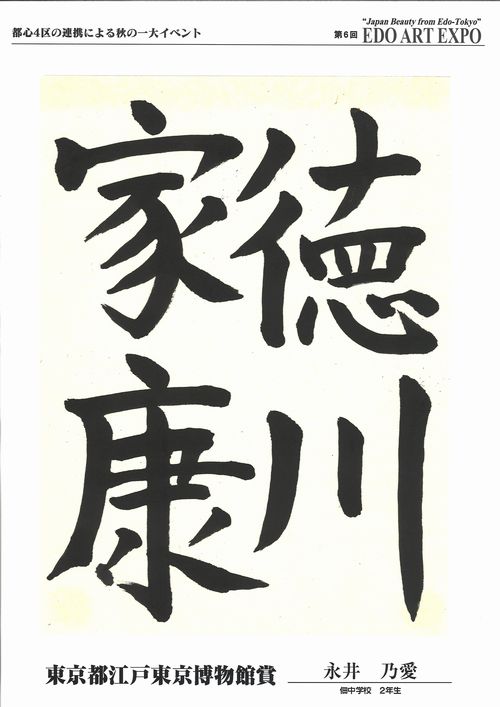 都心4区の連携による秋の一大イベント
"Japan Beauty from Edo-Tokyo"
第6回 EDO ART EXPO
徳川
家康
東京都江戸東京博物館賞
永井 乃愛
佃中学校 2年生